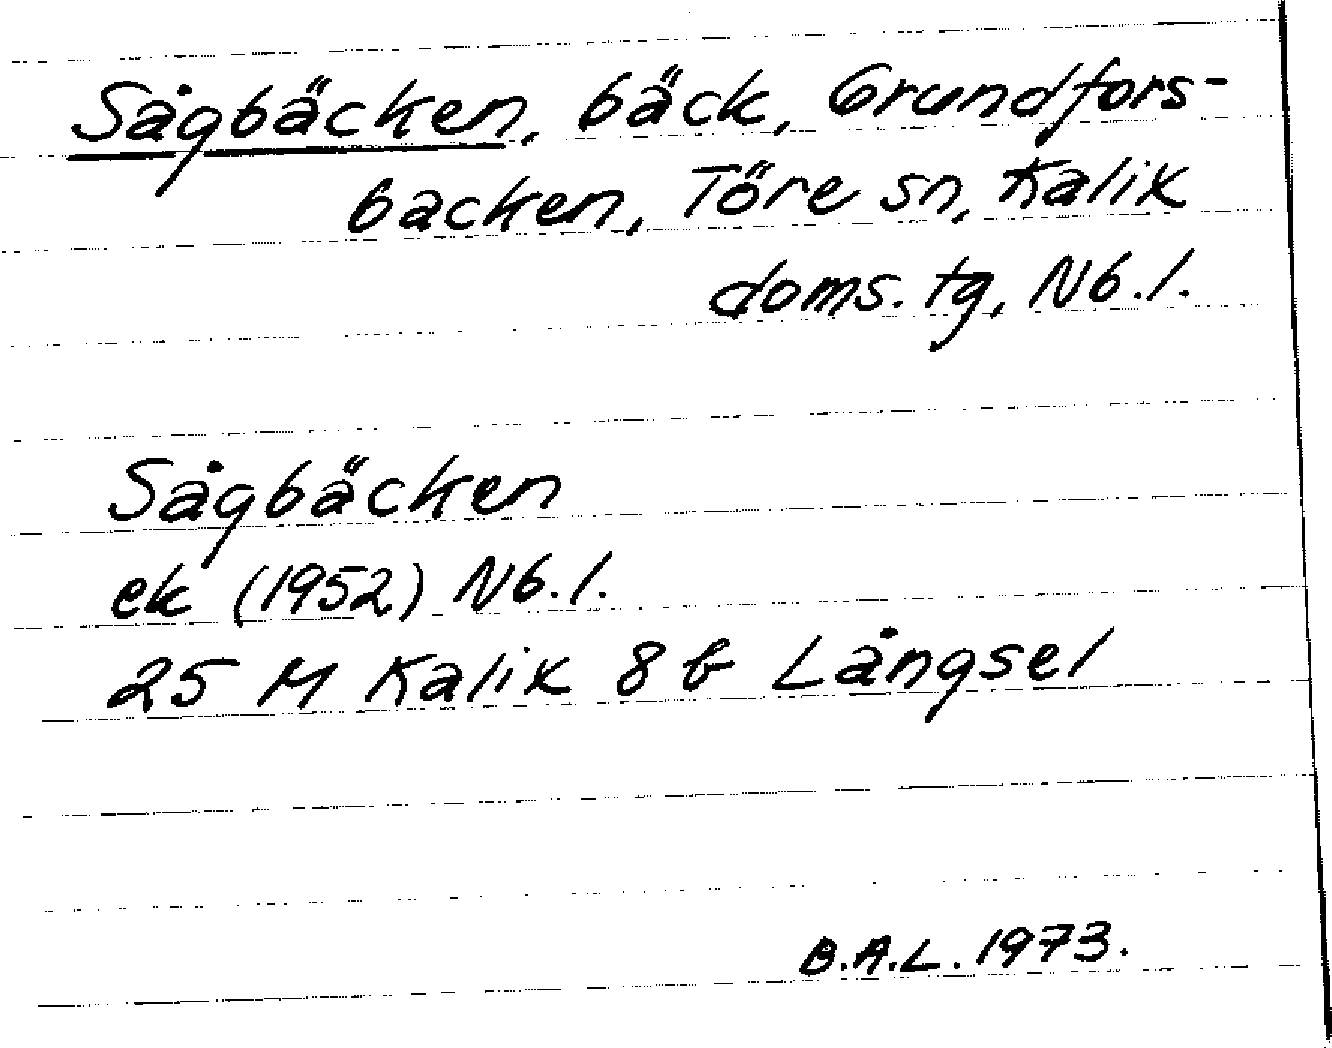 Sågbäcken, bäck, Grundfors-
backen, Töre sn, Kalix
doms. tg, Nb.l.
Sågbäcken
ek (1952) Nb.l.
25 M Kalix 8 b Långsel
B.A.L. 1973.